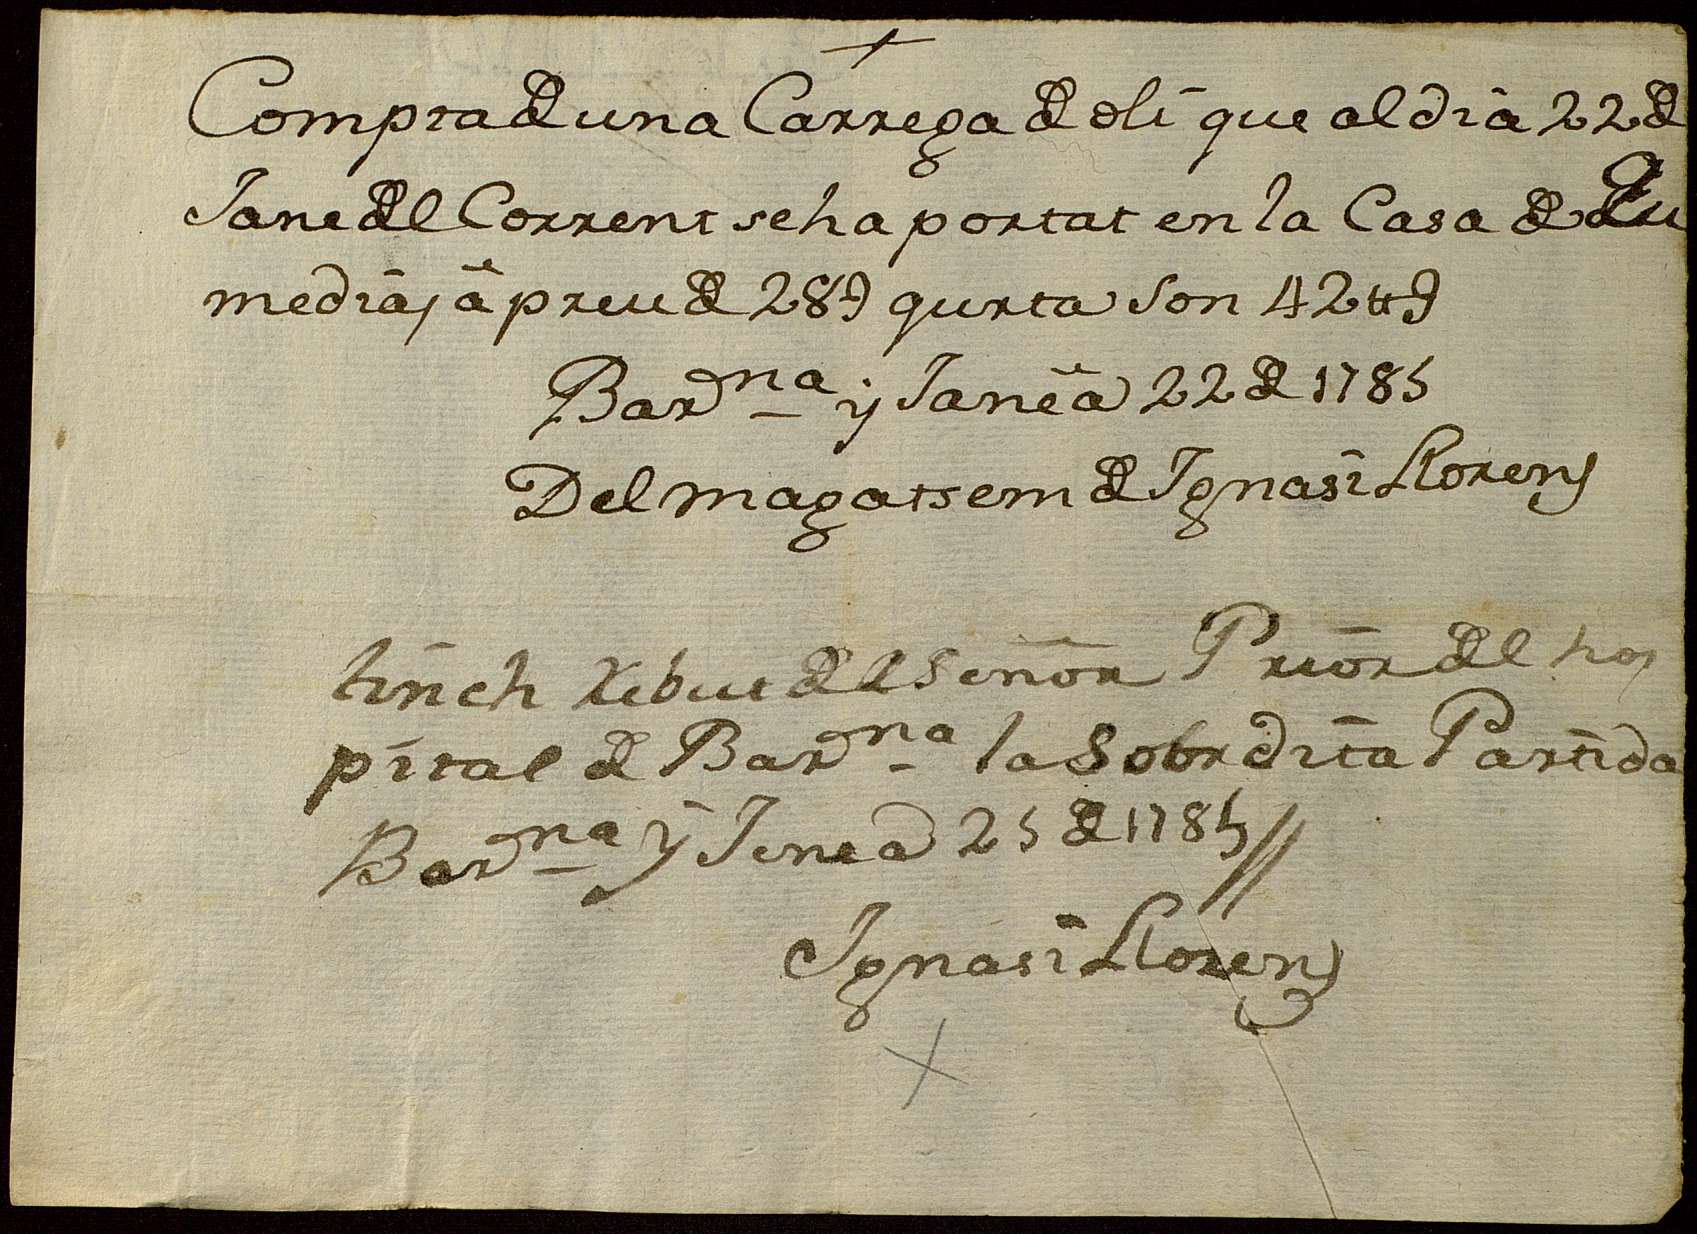 Compra de una Carrega de oli que al dia 22 de
Jane del Corrent se ha portat en la Casa de Cu
media, â preu de 28 ꝯ qurta son 42 ꝯ
Bar.na y Janeâ 22 de 1785
Del magatsem de Ignasi Llorens
tinch Rebut del Señor Prior del hos
pital de Bar.na la Sobrdita Partida
Bar.na y Jenea 25 de 1785 //
Ignasi Llorens